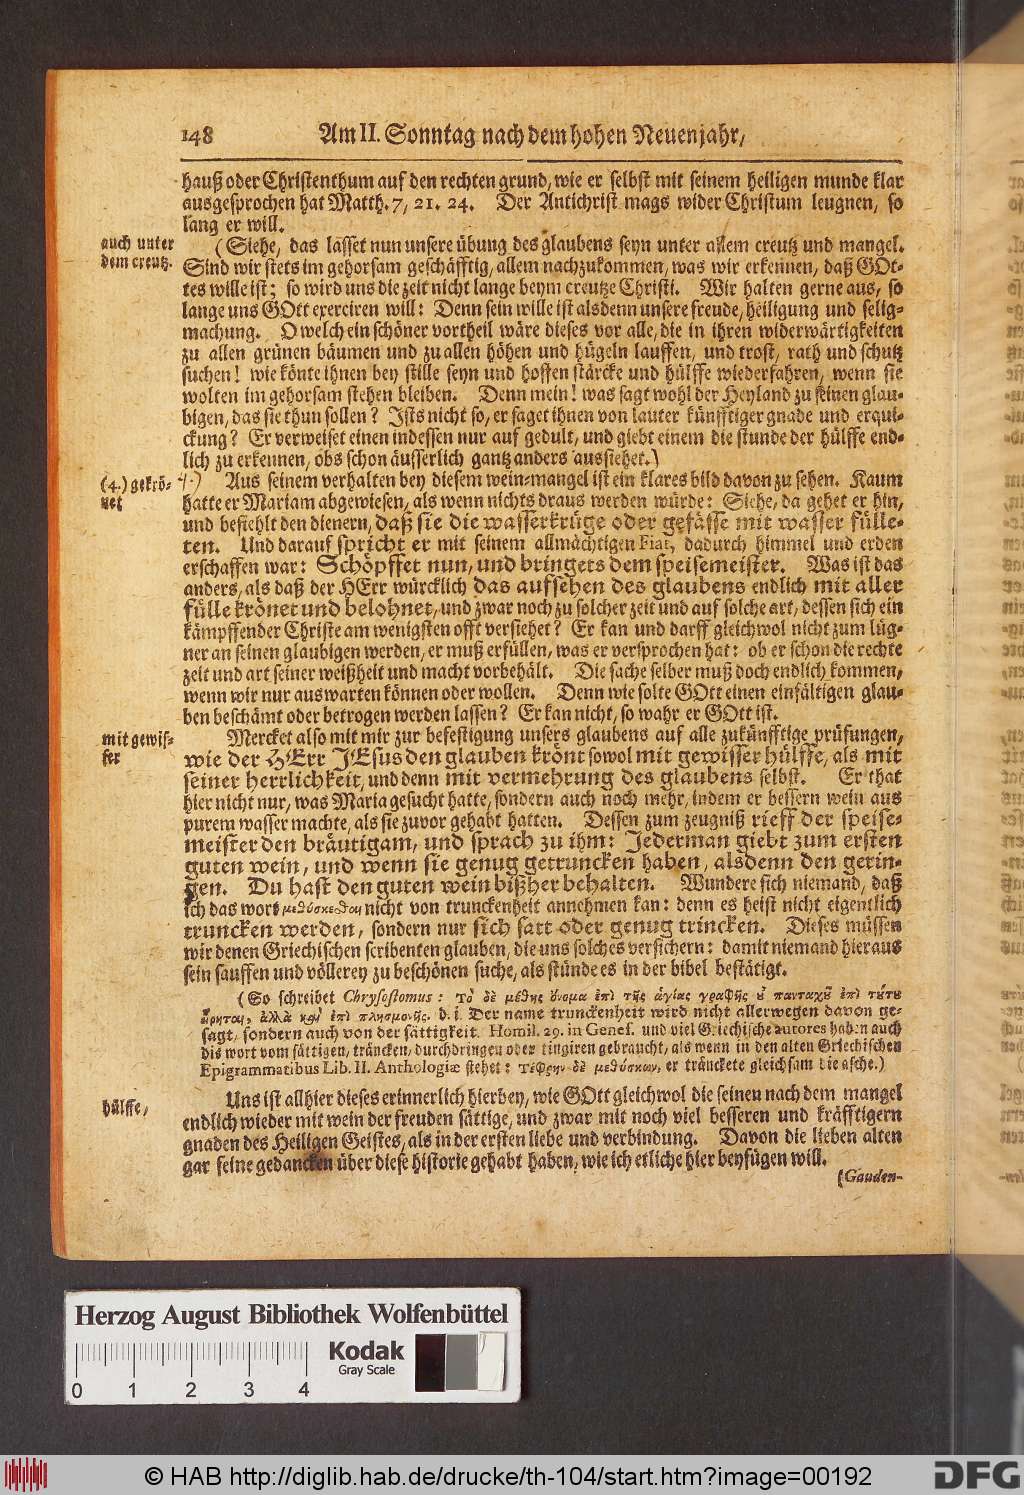 148 Am II. Sonntag nach dem hohen Neuenjahr,
hauß oder Christenthum auf den rechten grund, wie er selbst mit seinem heiligen munde klar
ausgesprochen hat Matth. 7, 21. 24. Der Antichrist mags wider Christum leugnen, so
lang er will.
auch unter
dem creutz.
(Siehe, das lässet nun unsere übung des glaubens seyn unter allem creutz und mangel.
Sind wir stets im gehorsam geschäfftig, allem nachzukommen, was wir erkennen, daß GOt-
tes wille ist; so wird uns die zeit nicht lange beym creutze Christi. Wir halten gerne aus, so
lange uns GOtt exerciren will: Denn sein wille ist alsdenn unsere freude, heiligung und selig-
machung. O welch ein schöner vortheil wäre dieses vor alle, die in ihren widerwärtigkeiten
zu allen grünen bäumen und zu allen höhen und hügeln lauffen, und trost, rath und schutz
suchen! wie könte ihnen bey stille seyn und hoffen stärcke und hülffe wiederfahren, wenn sie
wolten im gehorsam stehen bleiben. Denn mein! was sagt wohl der Heyland zu seinen glau-
bigen, das sie thun sollen? Ists nicht so, er saget ihnen von lauter künfftiger gnade und erqui-
ckung? Er verweiset einen indessen nur auf gedult, und giebt einem die stunde der hülffe end-
lich zu erkennen, obs schon äusserlich gantz anders aussiehet.)
(4.) gekrö-
net
4.) Aus seinem verhalten bey diesem wein-mangel ist ein klares bild davon zu sehen. Kaum
hatte er Mariam abgewiesen, als wenn nichts draus werden würde: Siehe, da gehet er hin,
und befiehlt den dienern, daß sie die wasserkrüge oder gefässe mit wasser fülle-
ten. Und darauf spricht er mit seinem allmächtigen Fiat, dadurch himmel und erden
erschaffen war: Schöpffet nun, und bringets dem speisemeister. Was ist das
anders, als daß der HErr würcklich das aufsehen des glaubens endlich mit aller
fülle krönet und belohnet, und zwar noch zu solcher zeit und auf solche art, dessen sich ein
kämpffender Christe am wenigsten offt versiehet? Er kan und darff gleichwol nicht zum lüg-
ner an seinen glaubigen werden, er muß erfüllen, was er versprochen hat: ob er schon die rechte
zeit und art seiner weißheit und macht vorbehält. Die sache selber muß doch endlich kommen,
wenn wir nur auswarten können oder wollen. Denn wie solte GOtt einen einfältigen glau-
ben beschämt oder betrogen werden lassen? Er kan nicht, so wahr er GOtt ist.
mit gewis-
ser
Mercket also mit mir zur befestigung unsers glaubens auf alle zukünfftige prüfungen,
wie der HErr JEsus den glauben krönt sowol mit gewisser hülffe, als mit
seiner herrlichkeit, und denn mit vermehrung des glaubens selbst. Er that
hier nicht nur, was Maria gesucht hatte, sondern auch noch mehr, indem er bessern wein aus
purem wasser machte, als sie zuvor gehabt hatten. Dessen zum zeugniß rieff der speise-
meister den bräutigam, und sprach zu ihm: Jederman giebt zum ersten
guten wein, und wenn sie genug getruncken haben, alsdenn den gerin-
gen. Du hast den guten wein bißher behalten. Wundere sich niemand, daß
ich das wort μεθύσκεσθαι nicht von trunckenheit annehmen kan: denn es heist nicht eigentlich
truncken werden, sondern nur sich satt oder genug trincken. Dieses müssen
wir denen Griechischen scribenten glauben, die uns solches versichern: damit niemand hieraus
sein sauffen und völlerey zu beschönen suche, als stünde es in der bibel bestätigt.
(So schreibet Chrysostomus: Τὸ δὲ μέθης ὄνομα ἐπὶ τῆς ἁγίας γραφῆς οὐ πανταχοῦ ἐπὶ τούτου
εἴρηται, ἀλλὰ καὶ ἐπὶ πλησμονῆς. d. i. Der name trunckenheit wird nicht allerwegen davon ge-
sagt, sondern auch von der sättigkeit. Homil. 29. in Genes. und viel Griechische autores haben auch
dis wort vom sättigen, träncken, durchdringen oder tingiren gebraucht, als wenn in den alten Griechischen
Epigrammatibus Lib. II. Anthologiæ stehet: Τέφρην δὲ μεθύσκων, er tränckete gleichsam die asche.)
hülffe,
Uns ist allhier dieses erinnerlich hierbey, wie GOtt gleichwol die seinen nach dem mangel
endlich wieder mit wein der freuden sättige, und zwar mit noch viel besseren und kräfftigern
gnaden des Heiligen Geistes, als in der ersten liebe und verbindung. Davon die lieben alten
gar feine gedancken über diese historie gehabt haben, wie ich etliche hier beyfügen will.
(Gauden-
Herzog August Bibliothek Wolfenbüttel
Kodak
Gray Scale
0 1 2 3 4
© HAB http://diglib.hab.de/drucke/th-104/start.htm?image=00192
DFG